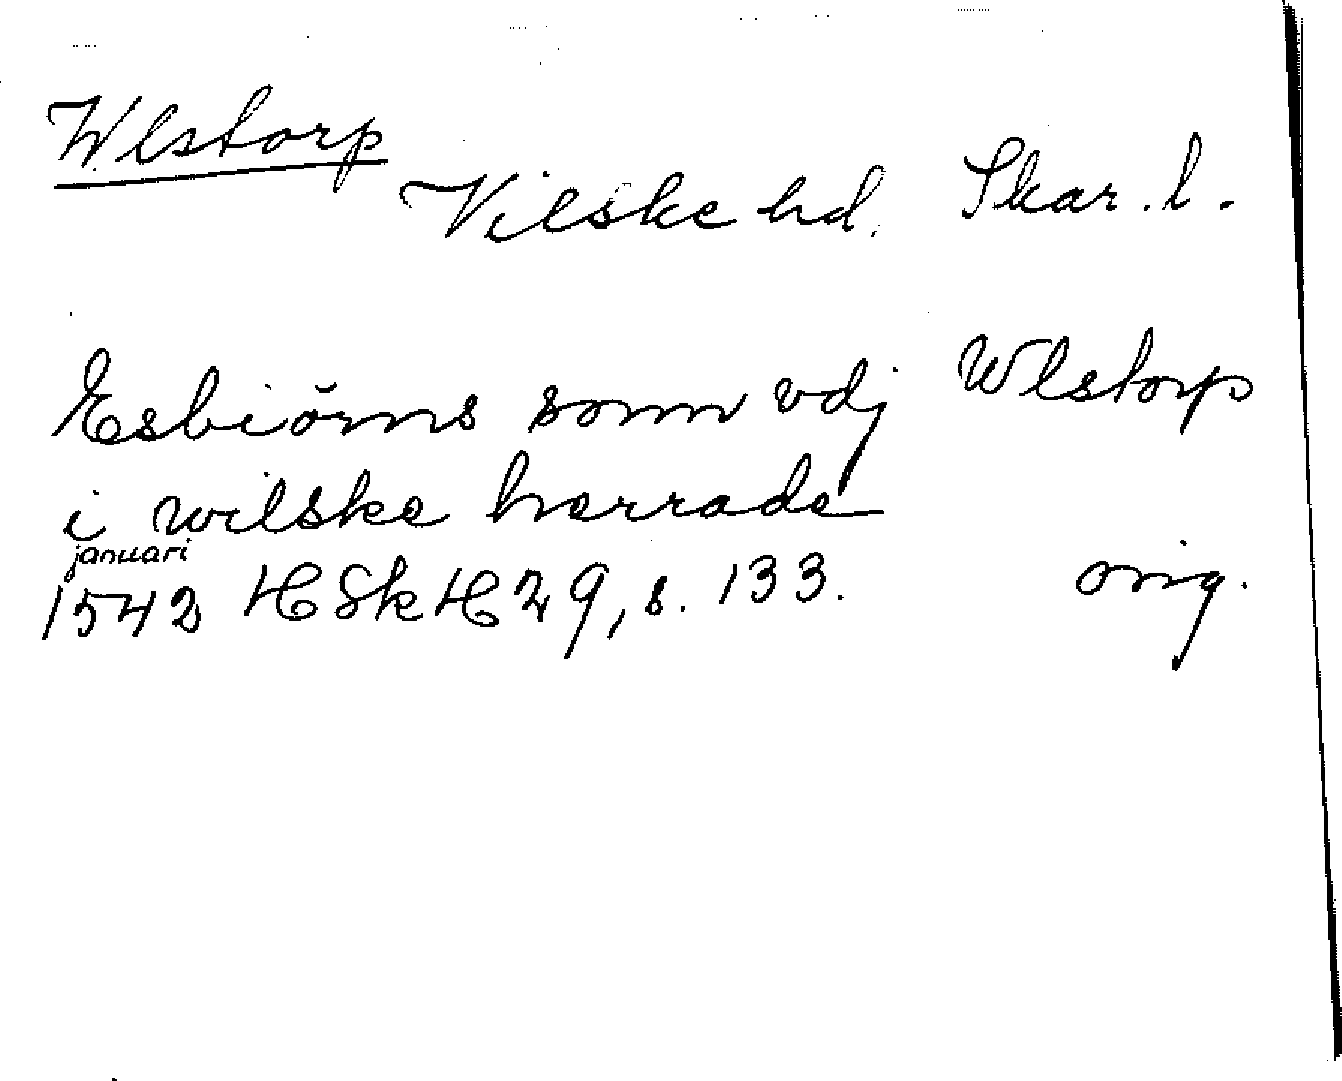 Wlstorp
Vilske hd. Skar. l.
Esbiörns somm vdj Wlstorp
i wilske herrade
januari
1542 HSkH 29, s. 133. orig.